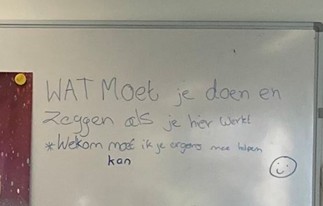 WAT Moet je doen en
zeggen als je hier werkt
*Wekom moet ik je ergens mee helpen
kan